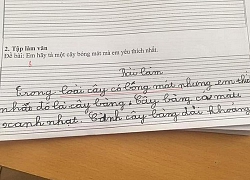 2. Tập làm văn
Đề bài: Em hãy tả một cây bóng mát mà em yêu thích nhất.
Bài làm
Trong loài cây có bóng mát nhưng em thí
nhất đó là cây bàng. Cây bàng có màu
xanh nhạt. Cành cây bàng dài khoảng